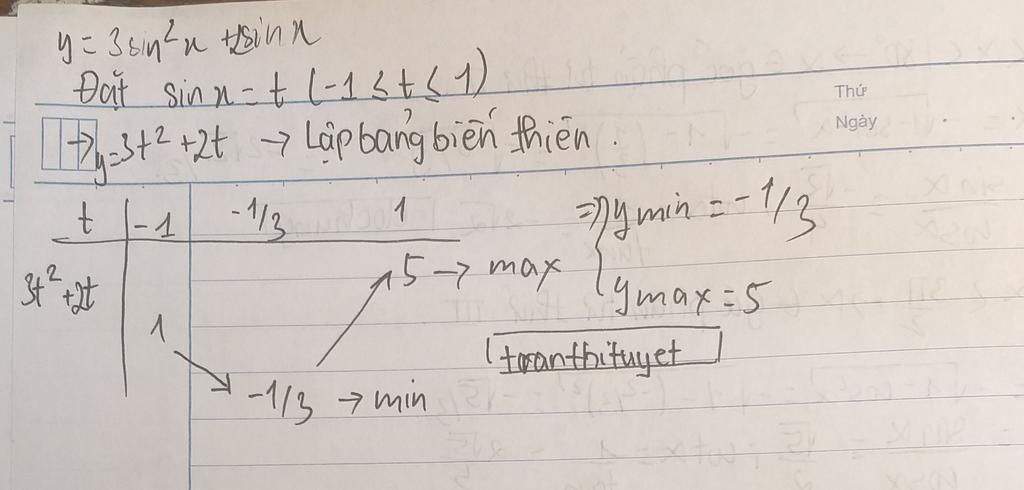 y = 3sin²x + 2sinx
Đặt sinx = t (-1 ≤ t ≤ 1)
Thứ
Ngày
→ y=3t² + 2t → Lập bảng biến thiên.
t -1 -1/3 1
3t² + 2t 1 -1/3 → min 5 → max
=> { y min = -1/3
y max = 5
tranthituyet